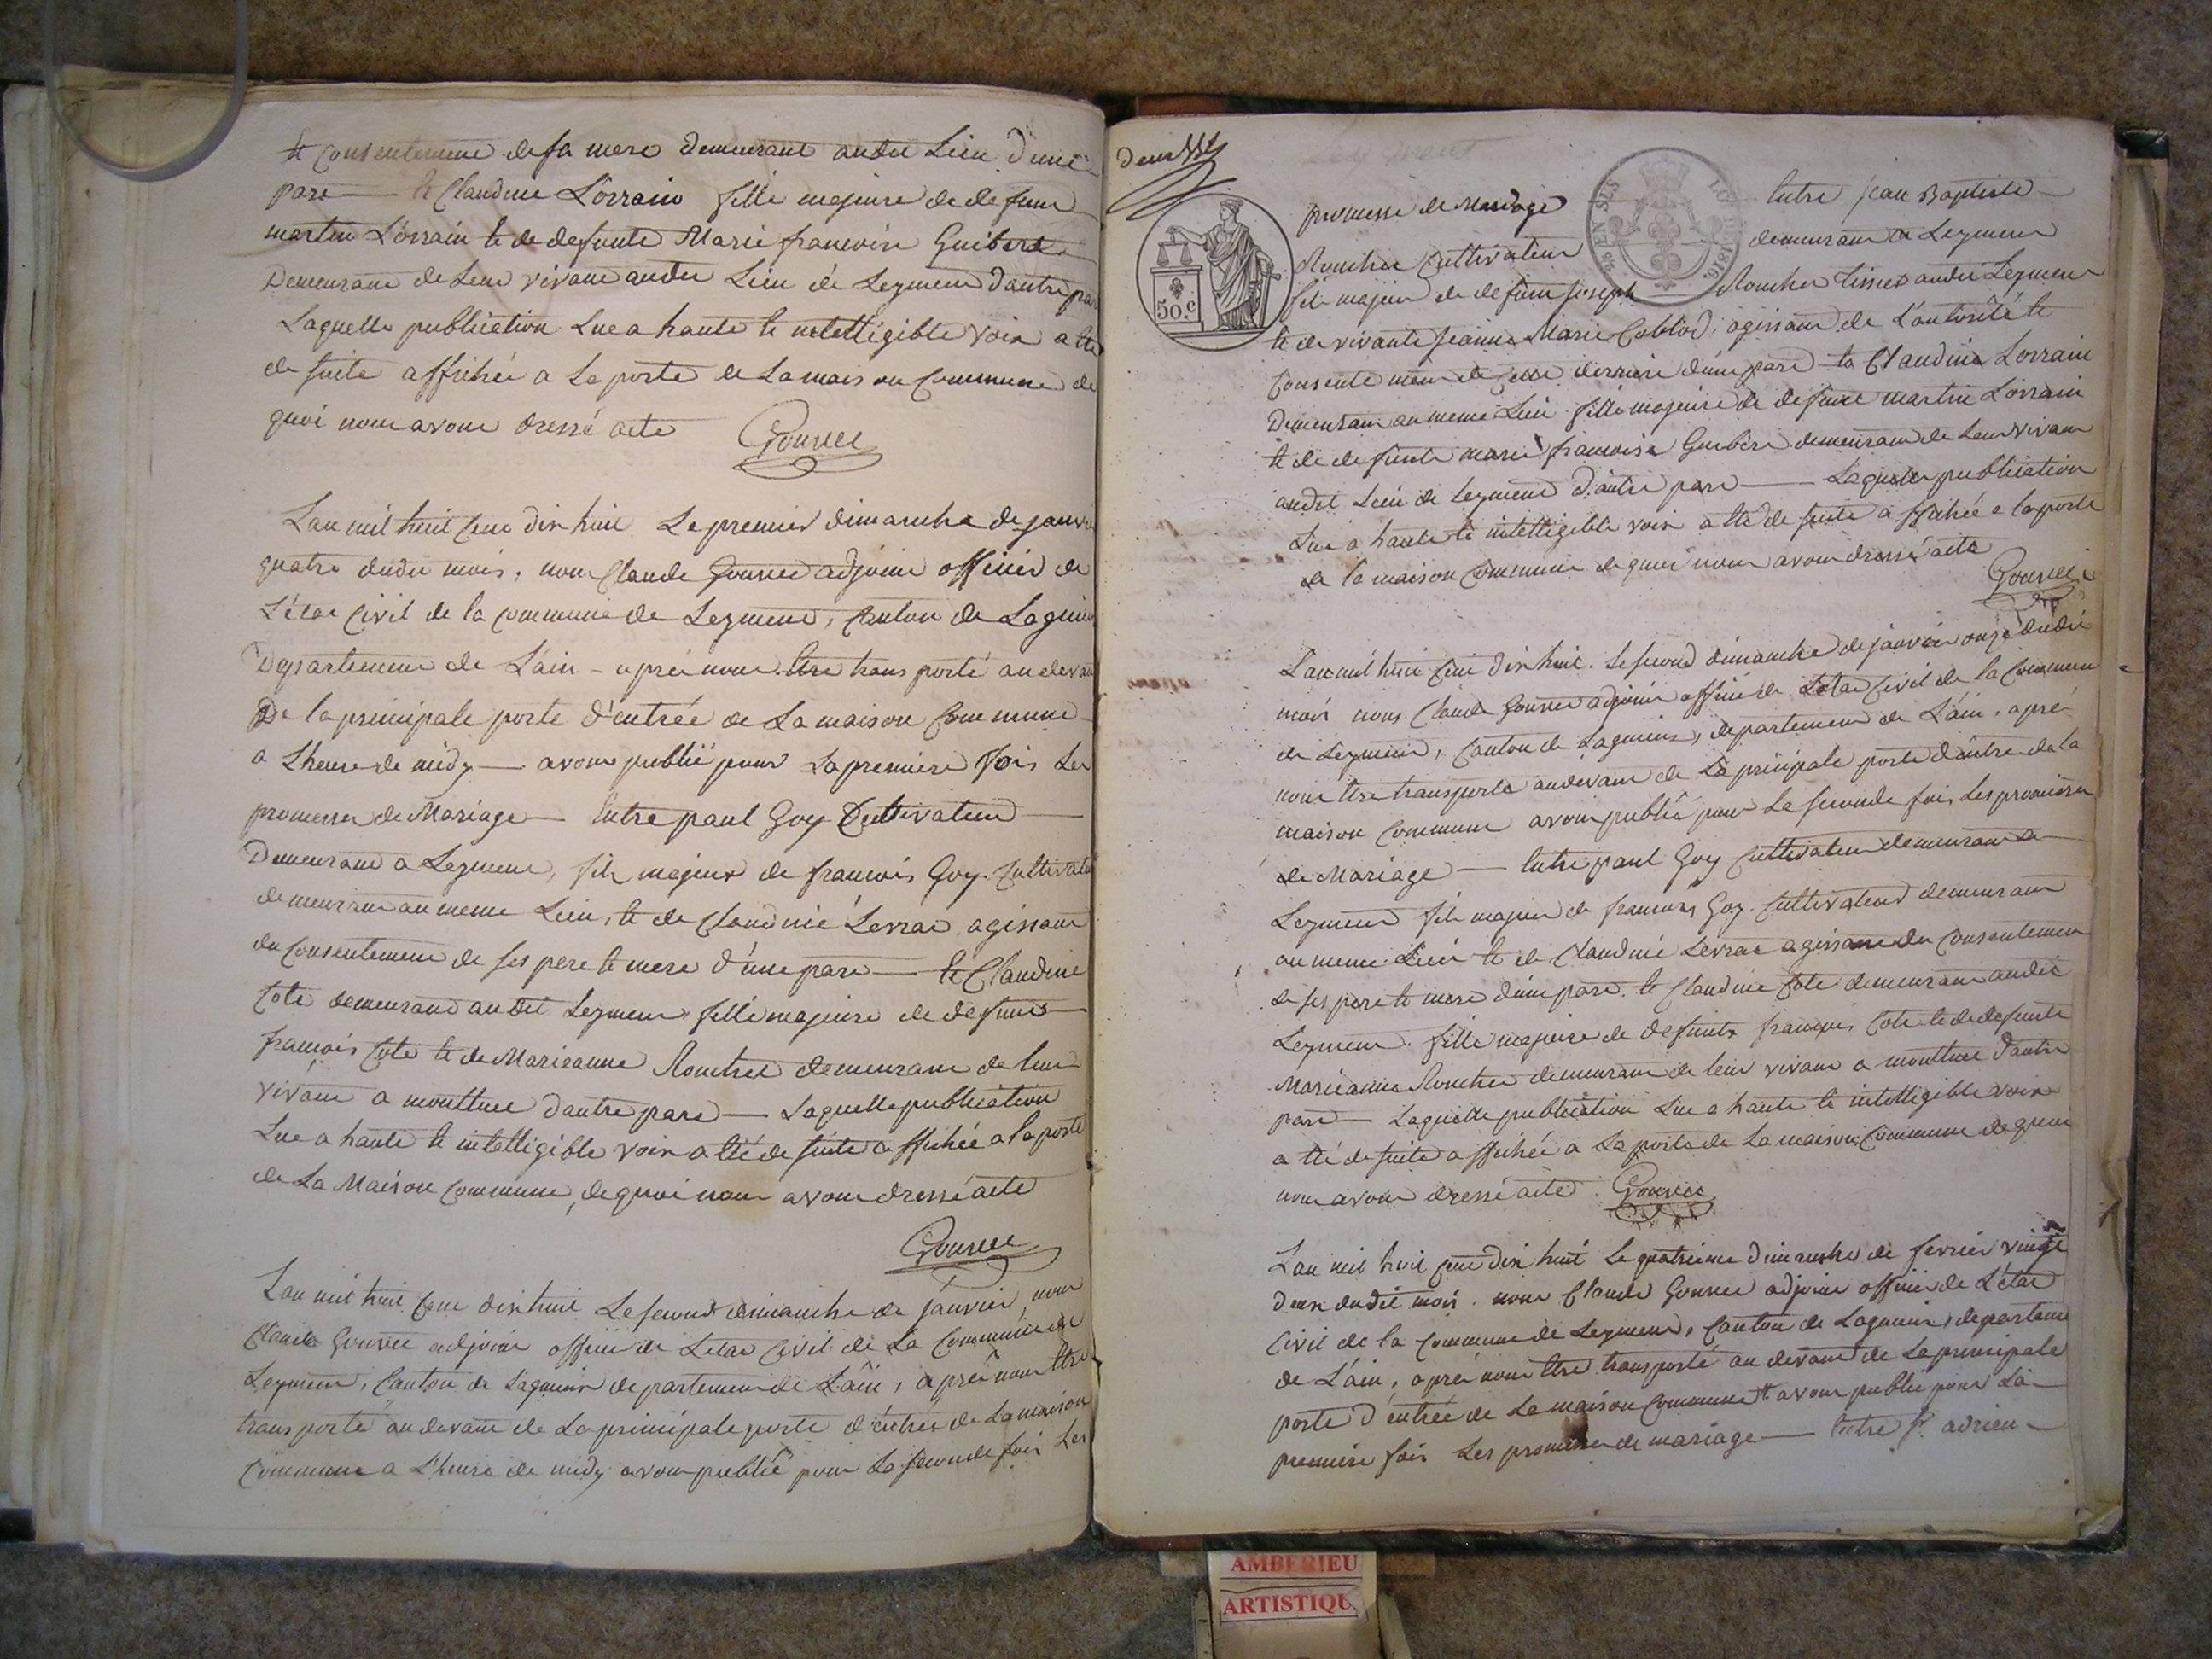 te Consentement de sa mere demeurant audit Lieu d'une
part — te Claudine Lorrain fille majeure de defunt
martin Lorrain te de defunte Marie francoise Guibert
Demeurant de Leur vivant audit Lieu de Leyment d'autre part
Laquelle publication Lue a haute te intelligible voix a tté
de suite affichée a La porte de La maison Commune de
quoi nous avons dressé acte Gonvee
L'an mil huit Cent dix huit Le premier dimanche de janvier
quatre dudit mois, nous Claude Gonvee adjoint officier de
L'état Civil de la Commune de Leyment, Canton de Lagnieu
Departement de L'ain - apré nous ttre transporté au devant
De la principale porte d'entrée de La maison Commune
a L'heure de midy — avons publié pour La premiere fois Les
promesses de Mariage — Entre paul Goy Cultivateur —
Demeurant a Leyment, fils majeur de francois Goy Cultivateur
demeurant au meme Lieu, te de Claudine Levrat agissant
du Consentement de ses pere te mere d'une part — te Claudine
Cote demeurant au dit Leyment fille majeure de defunt
francois Cote te de Marieanne Rouchet demeurant de leur
vivant a monttuel d'autre part — Laquelle publication
Lue a haute te intelligible voix a tté de suite affichée a la porte
de La Maison Commune, de quoi nous avons dressé acte
Gonvee
L'an mil huit Cent dix huit Le second dimanche de janvier, nous
Claude Gonvee adjoint officier de L'etat Civil de La Commune de
Leyment, Canton de Lagnieu departement de L'ain, apré nous ttre
transporté au devant de La principale porte d'entrée de La maison
Commune a L'heure de midy avons publié pour La seconde fois Les
deux
50 c
EN SUS
LOI DE 1816
promesse de Mariage Entre jean Baptiste
Rouchet Cultivateur demeurant a Leyment
fils majeur de defunt joseph Rouchet tisser audit Leyment
te de vivante jeanne Marie Cobliod, agissant de L'autorité te
Consentement de cette derniere d'une part — te Claudine Lorrain
Demeurant au meme Lieu fille majeure de defunt martin Lorrain
te de defunte marie francoise Guibert demeurant de Leur vivant
audit Lieu de Leyment d'autre part — Laquelle publication
Lue a haute te intelligible voix a tté de suite affichée a la porte
de la maison Commune de quoi nous avons dressé acte
Gonvee
L'an mil huit Cent dix huit. Le second dimanche de janvier onze dudit
mois nous Claude Gonvee adjoint officier de L'etat Civil de la Commune
de Leyment, Canton de Lagnieu, departement de L'ain, apré
nous ttre transporté audevant de La principale porte d'entre de la
maison Commune avons publié pour La seconde fois Les promesses
de Mariage — Entre paul Goy Cultivateur demeurant a
Leyment fils majeur de francois Goy Cultivateur demeurant
au meme Lieu te de Claudine Levrat agissant du Consentement
de ses pere te mere d'une part. te Claudine Cote demeurant audit
Leyment. fille majeure de defunts francois Cote te de defunte
Marieanne Rouchet demeurant de leur vivant a monttuel d'autre
part — Laquelle publication Lue a haute te intelligible voix
a tté de suite affichée a La porte de La maison Commune de quoi
nous avons dressé acte. Gonvee
L'an mil huit Cent dix huit Le quatrieme dimanche de fevrier vingt
deux dudit mois. nous Claude Gonvee adjoint officier de L'etat
Civil de la Commune de Leyment, Canton de Lagnieu, departement
de L'ain, apré nous ttre transporté au devant de La principale
porte d'entrée de La maison Commune avons publié pour La
premiere fois Les promesses de mariage — Entre adrien
AMBERIEU
ARTISTIQU